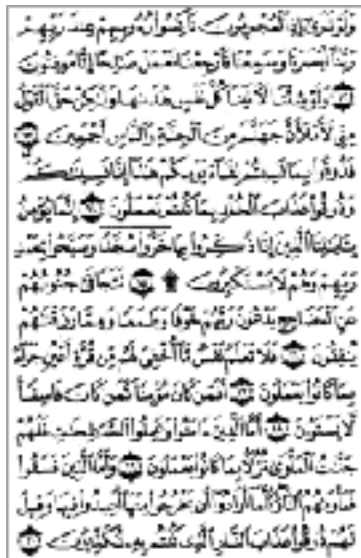 وَلَوْ تَرَىٰٓ إِذِ ٱلْمُجْرِمُونَ نَاكِسُوا۟ رُءُوسِهِمْ عِندَ رَبِّهِمْ
رَبَّنَآ أَبْصَرْنَا وَسَمِعْنَا فَٱرْجِعْنَا نَعْمَلْ صَٰلِحًا إِنَّا مُوقِنُونَ
١٢ وَلَوْ شِئْنَا لَءَاتَيْنَا كُلَّ نَفْسٍ هُدَىٰهَا وَلَٰكِنْ حَقَّ ٱلْقَوْلُ
مِنِّى لَأَمْلَأَنَّ جَهَنَّمَ مِنَ ٱلْجِنَّةِ وَٱلنَّاسِ أَجْمَعِينَ ١٣
فَذُوقُوا۟ بِمَا نَسِيتُمْ لِقَآءَ يَوْمِكُمْ هَٰذَآ إِنَّا نَسِينَٰكُمْ
وَذُوقُوا۟ عَذَابَ ٱلْخُلْدِ بِمَا كُنتُمْ تَعْمَلُونَ ١٤ إِنَّمَا يُؤْمِنُ
بِـَٔايَٰتِنَا ٱلَّذِينَ إِذَا ذُكِّرُوا۟ بِهَا خَرُّوا۟ سُجَّدًا وَسَبَّحُوا۟ بِحَمْدِ
رَبِّهِمْ وَهُمْ لَا يَسْتَكْبِرُونَ ۩ ١٥ تَتَجَافَىٰ جُنُوبُهُمْ
عَنِ ٱلْمَضَاجِعِ يَدْعُونَ رَبَّهُمْ خَوْفًا وَطَمَعًا وَمِمَّا رَزَقْنَٰهُمْ
يُنفِقُونَ ١٦ فَلَا تَعْلَمُ نَفْسٌ مَّآ أُخْفِىَ لَهُم مِّن قُرَّةِ أَعْيُنٍ جَزَآءًۢ
بِمَا كَانُوا۟ يَعْمَلُونَ ١٧ أَفَمَن كَانَ مُؤْمِنًا كَمَن كَانَ فَاسِقًا
لَّا يَسْتَوُۥنَ ١٨ أَمَّا ٱلَّذِينَ ءَامَنُوا۟ وَعَمِلُوا۟ ٱلصَّٰلِحَٰتِ فَلَهُمْ
جَنَّٰتُ ٱلْمَأْوَىٰ نُزُلًۢا بِمَا كَانُوا۟ يَعْمَلُونَ ١٩ وَأَمَّا ٱلَّذِينَ فَسَقُوا۟
فَمَأْوَىٰهُمُ ٱلنَّارُ كُلَّمَآ أَرَادُوٓا۟ أَن يَخْرُجُوا۟ مِنْهَآ أُعِيدُوا۟ فِيهَا وَقِيلَ
لَهُمْ ذُوقُوا۟ عَذَابَ ٱلنَّارِ ٱلَّذِى كُنتُم بِهِۦ تُكَذِّبُونَ ٢٠